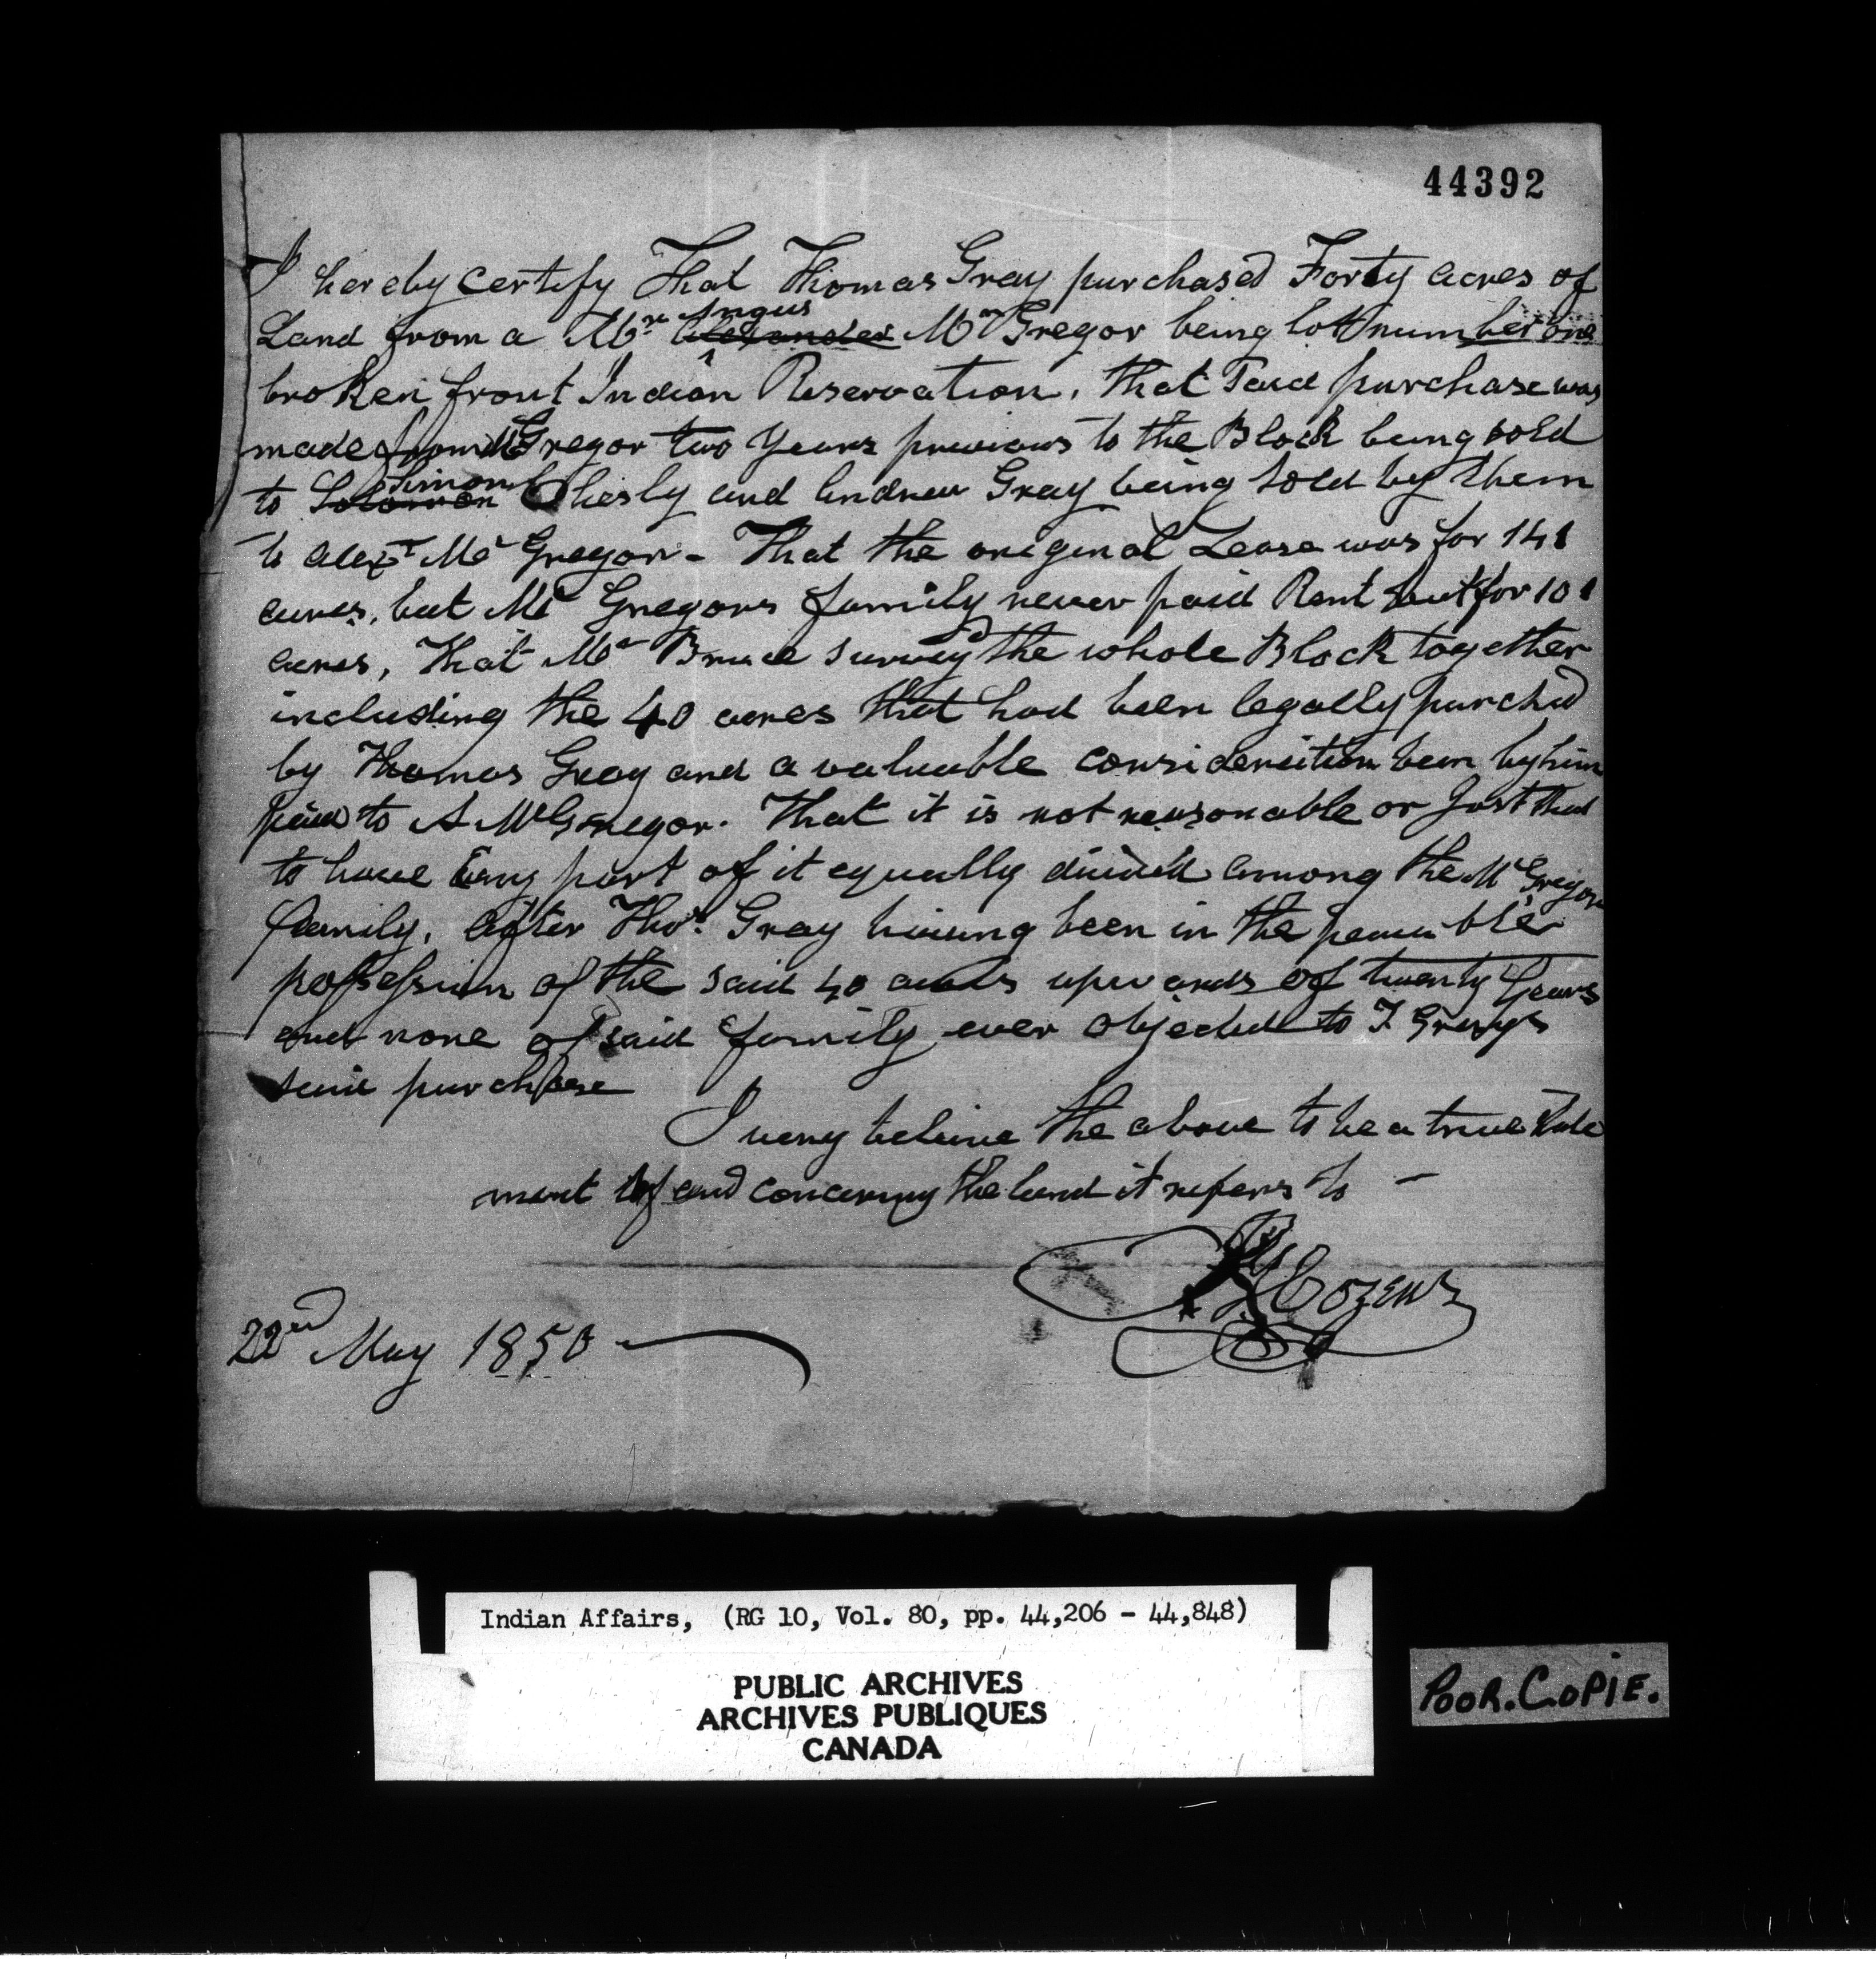 44392
I hereby certify That Thomas Gray purchased Forty acres of
Land from a Mr Angus Alexander Mc Gregor being lot number one
broken front Indian Reservation, that Said purchase was
made from McGregor two Years previous to the Block being sold
to Solomon Simon Chesly and Andrew Gray being sold by them
to Alexr Mc Gregor - That the original Lease was for 141
acres, but Mc Gregors family never paid Rent but for 101
acres, That Mr Bruce survey the whole Block together
including the 40 acres that had been legally purchsd
by Thomas Gray and a valuable consideration been by him
paid to A McGregor. That it is not reasonable or Just that
to have any part of it equally divided among the Mc Gregor
family, After Thos. Gray having been in the peacible
possession of the said 40 acres upwards of twenty Years
and none of said family ever objected to T Grays
said purchase
I verry believe the above to be a true State
ment of and concerning the land it refers to -
Cozens
22nd May 1850
Indian Affairs, (RG 10, Vol. 80, pp. 44,206 - 44,848)
PUBLIC ARCHIVES
ARCHIVES PUBLIQUES
CANADA
POOR. COPIE.